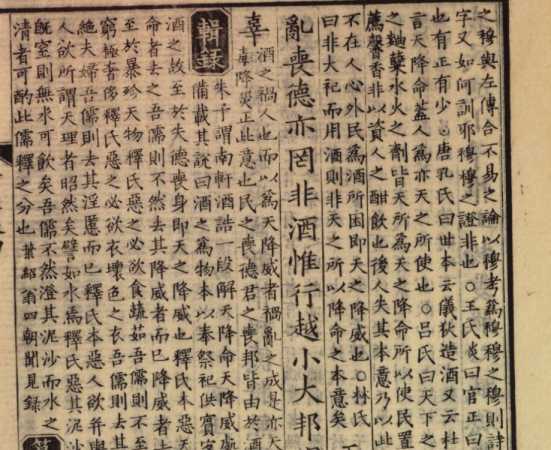 之穆與左傳合不易之論以穆考爲穆穆之穆則詩
字又如何訓耶穆穆之證非也○王氏炎曰官正曰
也有正有少○唐孔氏曰世本云儀狄造酒又云杜
言天降命蓋人爲亦天之所使也○呂氏曰天下之
之麯糱水火之劑皆天所爲天之降命所以使民置
薦馨香非以資人之酣飲也後人失其本意乃以此
不在人心外民爲酒所困即天之降威也○林氏
曰非大祀而用酒則非天之所以降命之本意矣
亂喪德亦罔非酒惟行越小大邦
辜
酒之禍人也而以爲天降威者禍亂之成是亦天
毒降災正此意也民之喪德君之喪邦皆由於酒
輯録
朱子謂南軒酒誥一段解天降命天降威處
備載其說曰酒之爲物本以奉祭祀供賓客
酒之故至於失德喪身即天之降威也釋氏本惡天
命者去之吾儒則不然去其降威者而已降威者去
至於暴殄天物釋氏惡之必欲食蔬茹吾儒則不至
窮極奢侈釋氏惡之必欲衣壞色之衣吾儒則去其
絶夫婦吾儒則去其淫慝而已釋氏本惡人欲并與
人欲所謂天理者昭然矣譬如水焉釋氏惡其泥沙
旣窒則無水可飲矣吾儒不然澄其泥沙而水之
清者可酌此儒釋之分也葉紹翁四朝聞見録